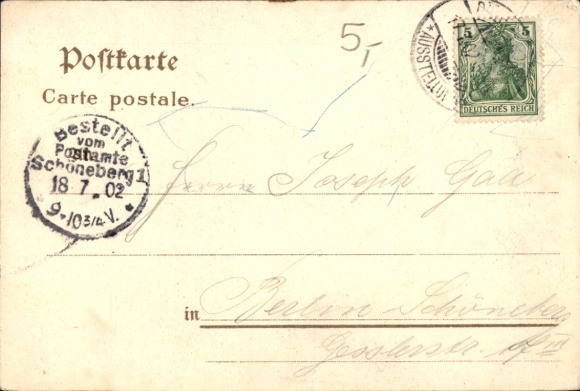 5,-
Postkarte
Carte postale.
5 5
DEUTSCHES REICH
Bestellt
vom
Postamte
Schöneberg 1
18.7.02
9-10 3/4 V.
Herrn Joseph
in Berlin Schöneberg